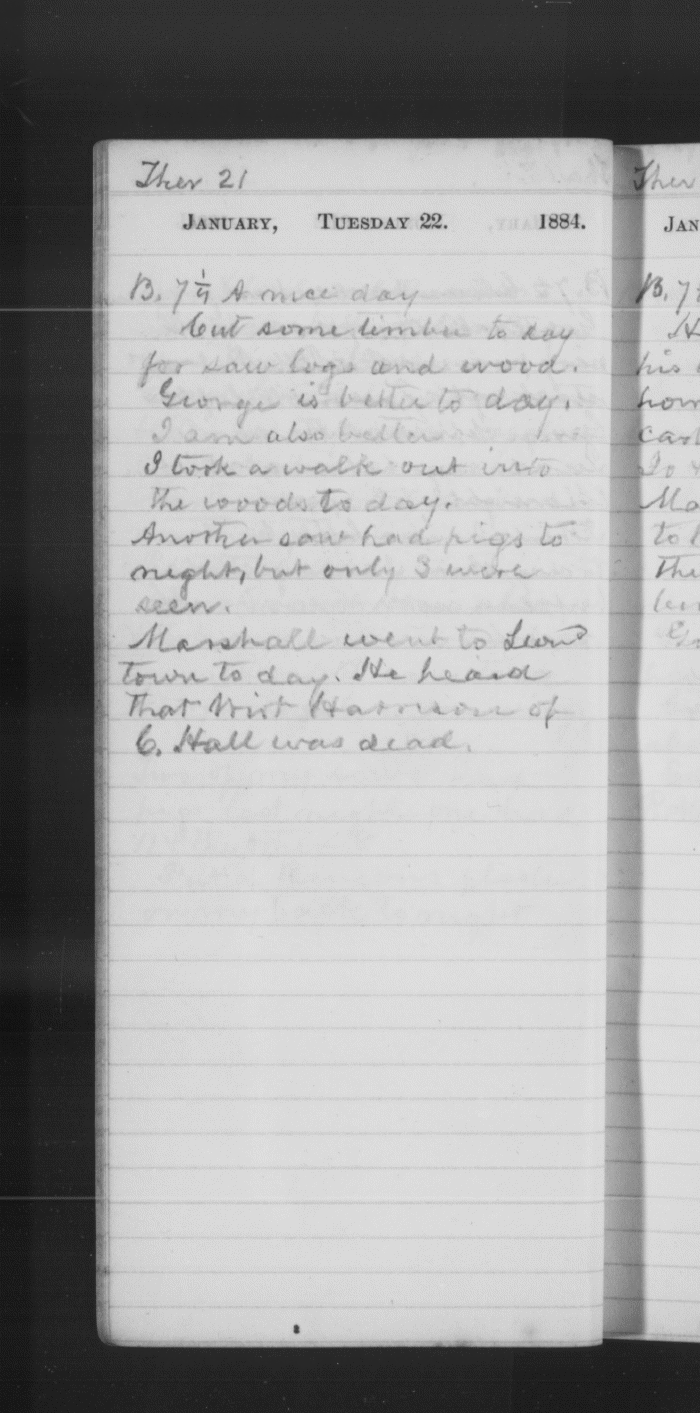 Ther 21
JANUARY, TUESDAY 22. 1884.
B. 7 1/4 A nice day
Cut some timber to day
for saw logs and wood.
George is better to day.
I am also better
I took a walk out into
the woods to day.
Another sow had pigs to
night, but only 3 were
seen.
Marshall went to
town to day. He heard
that Wirt Harrison of
C. Hall was dead.
Ther
JAN
B. 7
H
his
hom
cart
To
Ma
to
The